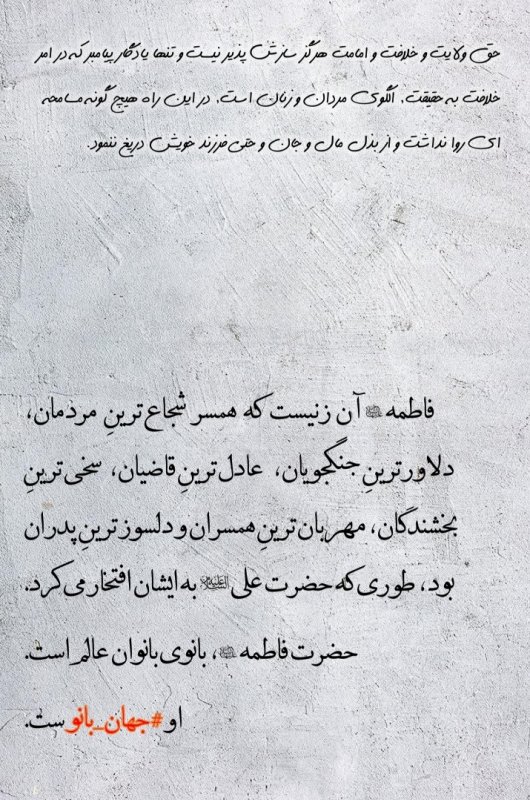 حق ولایت و خلافت و امامت هرگز سازش پذیر نیست و تنها یادگار پیامبر که در امر
خلافت به حقیقت، الگوی مردان و زنان است، در این راه هیچ گونه مسامحه
ای روا نداشت و از بذل مال و جان و حتی فرزند خویش دریغ ننمود.
فاطمه آن زنیست که همسر شجاع‌ترینِ مردمان،
دلاورترینِ جنگجویان، عادل‌ترینِ قاضیان، سخی‌ترینِ
بخشندگان، مهربان‌ترینِ همسران و دلسوزترینِ پدران
بود، طوری که حضرت علی علیه‌السلام به ایشان افتخار می‌کرد.
حضرت فاطمه، بانوی بانوان عالم است.
او #جهان_بانوست.